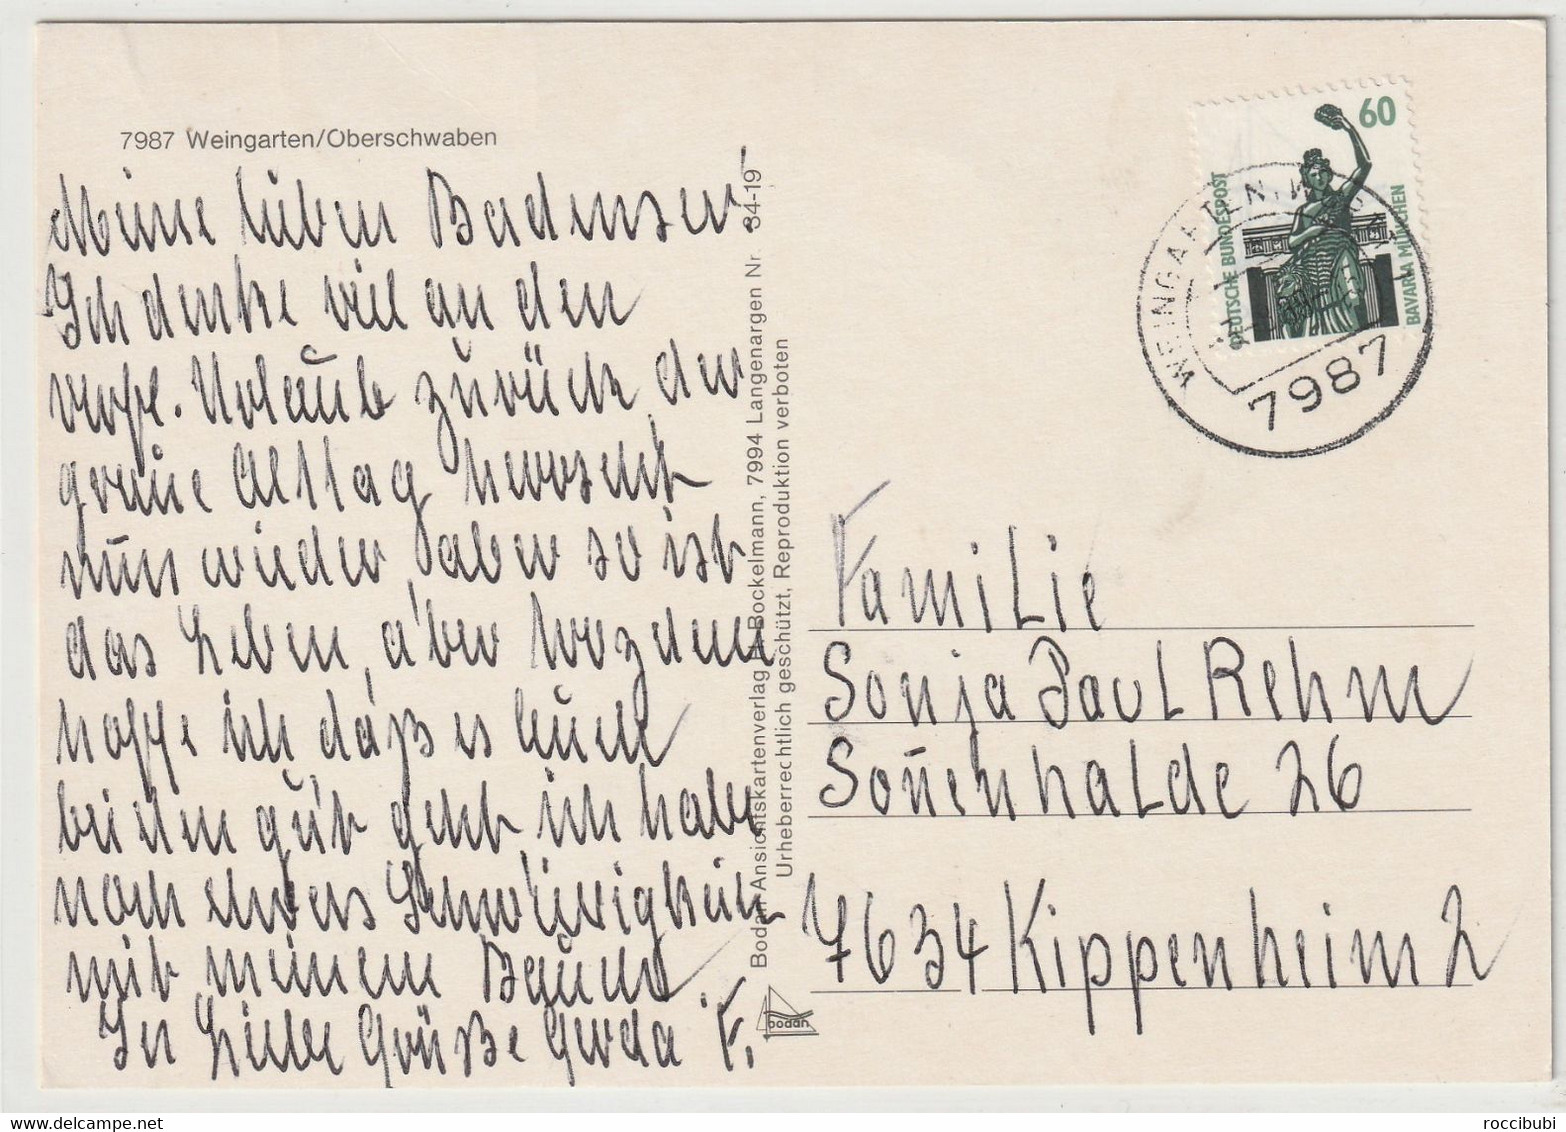 7987 Weingarten/Oberschwaben
Meine lieben Badenser!
Ich denke viel an den
verg. Urlaub zurück, der
graue Alltag herrscht
nun wieder, aber so ist
das Leben, aber trozdem
hoffe ich daß es Euch
beiden gut geht, ich habe
noch etwas Schwierigkeit
mit meinem Bauch.
In Liebe Grüße Gerda F.
Bodan-Ansichtskartenverlag Bockelmann, 7994 Langenargen Nr. 34-19
Urheberrechtlich geschützt, Reproduktion verboten
bodan
60
DEUTSCHE BUNDESPOST
BAVARIA MÜNCHEN
WEINGARTEN, WÜRTT
7987
Familie
Sonja Paul Rehm
Soñenhalde 26
7634 Kippenheim 2
roccibubi